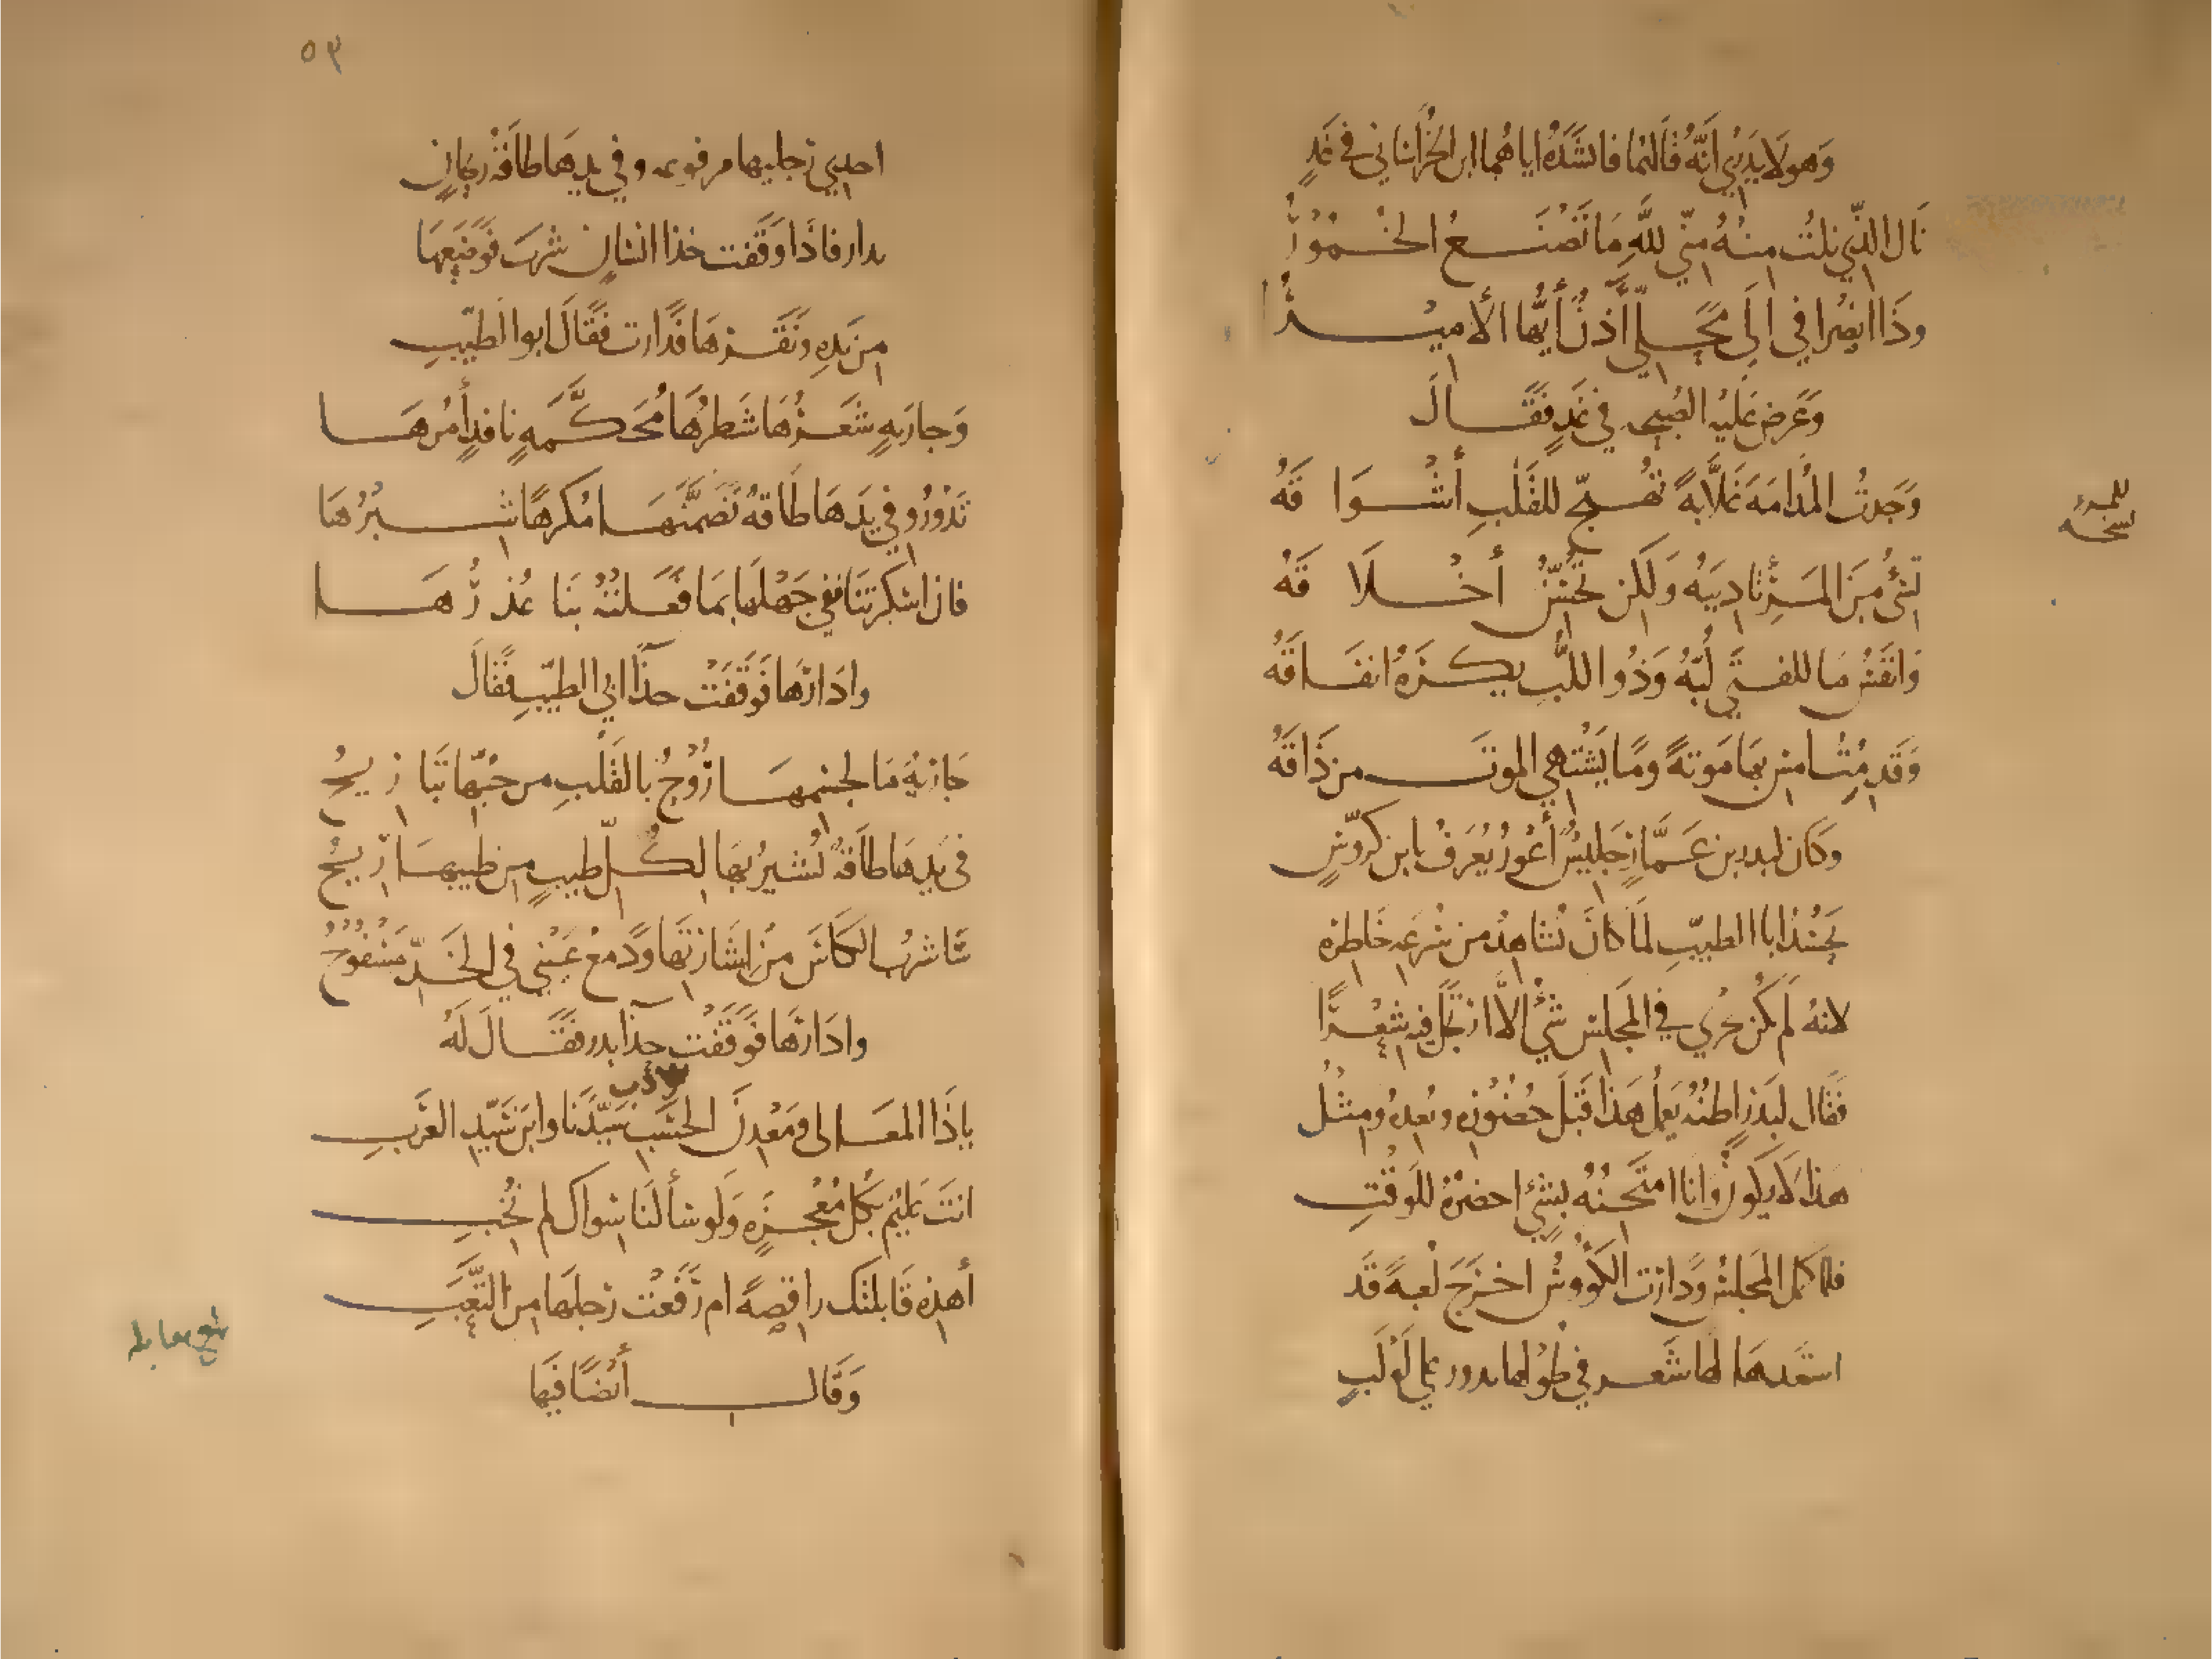 وَهو لَا يَدرِي أَنَّهُ قَالهُما فانشَدَهُ اياهُما ابن الخُراسَاني في غَدٍ
نَالَ الذّي نِلتُ مِنهُ مِنّي لله مَا تَصْنَعُ الخُمُورُ
وذَا انصِرافي الَى مَحَلّي أَآذنٌ أَيُّها الأميرُ
وَعَرضَ عَليهِ الصُبحِ في غَدٍ فَقَالَ
وَجَدتُ المُدامَهَ غَلّابَهً تُهيّج للقَلبِ أشْوَاقَهُ
تُسِئُ مِنَ المَرءِ تَادِيبَهُ وَلَكِن تُحَسِّنُ أخْلَاقَهُ
وَانفَسُ مَا للفَتَى لُبّهُ وَذُو اللُّبِ يكرَهُ انفَاقَهُ
وَقَد مِتُّ امسِ بهَا مَوتَهً ومَا يَشْتَهي الموتَ من ذَاقَهُ
وَكَان لبدر بن عَمَّارٍ جَلِيسٌ أَعْورُ يُعَرفُ بابن كَرَوَّسٍ
يَحسُدُ ابا الطيّبِ لمَا كانَ يُشاهِدُ من سُرعَهِ خَاطِرِه
لانهُ لَم يكُن يجري في المجَلِسِ شَئٌ الّا ارتَجَلَ فيه شِعْرًا
فَقَال لبَدرٍ اظنُهُ يَعمَلُ هَذا قَبلَ حُضُورِهِ ويُعِدهُ ومِثْلُ
هَذا لَا يَكونُ وَانا امتَحِنُهُ بشَئٍ احضِرهُ للوَقْتِ
فلمّا كَمل المَجلسُ وَدَارَت الكُؤوسُ اخرَجَ لُعبهً قَد
استَعَدهَا لها شَعر في طولها تدور على لَولَبٍ
للمبرد
نسخه
٥٣
احدي رجليها مرفوعه وفي يدِهَا طَاقَةُ رَيحانٍ
تدار فاذَا وَقَفت حذا انسَانٍ شربَ فَوَضَعَهَا
مِن يَدِهِ ونَقَرهَا فَدارت فَقَالَ ابوا الطيّبِ
وَجاريهٍ شَعَرُهَا شَطرُهَا مُحَكَّمَهٍ نافذٍ أَمْرهَا
تَدُورُ وفي يَدهَا طَاقهٌ تَضَمَّنَهَا مُكرهًا شِبرُهَا
فان اسْكَرتنَا ففي جَهْلهَا بمَا فَعَلَتْهُ بنَا عُذرُهَا
وادَارَهَا فَوَقَفَتْ حذَآ ابي الطيّبِ فَقَالَ
جَاريَهٌ مَا لجِسْمِهَا رُوحُ بالقَلبِ من حُبّها تَبَاريحُ
في يَدِهَا طاقَهٌ تُشيرُ بهَا لكُلّ طيبٍ مِن طِيبهَا ريحُ
سَاشربُ الكَاسَ مِن إشَارَتهَا وَدَمعُ عَيْني في الخَدّ مَسْفُوحُ
وادَارَهَا فَوَقَفَت حذَآ بدر فَقَالَ لَهُ
يا ذَا المعَالى وَمَعْدِنَ الحَسَبِ سَيّدَنَا وابنَ سَيّدِ العَرَبِ
الادب
انتَ عَليمٌ بكُلّ مُعْجِزَهٍ وَلَو سَألنَا سِواكَ لم يُجِبِ
أهذِه قَابلتكَ راقِصَهً ام رَفَعَتْ رِجلهَا مِن التّعَبِ
وَقَال أَيضًا فيهَا
بلغ مقابله